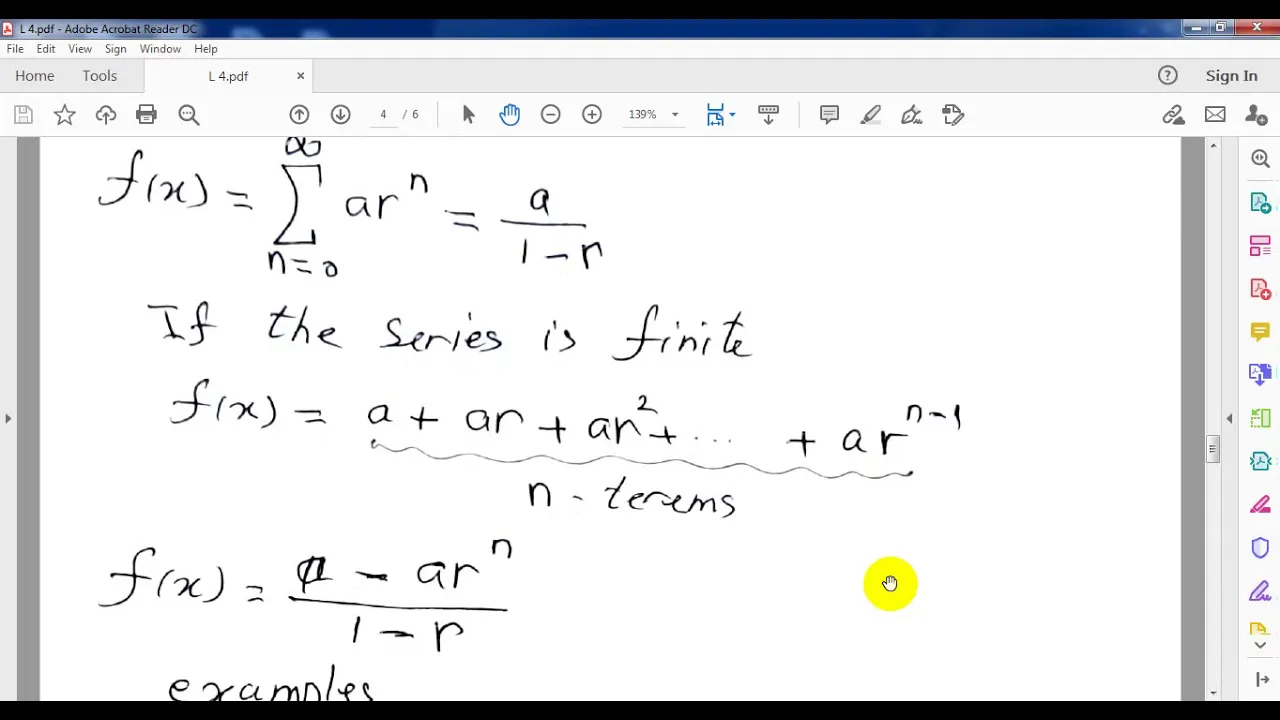 L 4.pdf - Adobe Acrobat Reader DC
File Edit View Sign Window Help
Home Tools L 4.pdf × Sign In
4 / 6 139%
f(x) = ∞ Σ n=0 ar^n = a / 1-r
If the series is finite
f(x) = a + ar + ar^2 + ... + ar^n-1
n - terems
f(x) = a - ar^n / 1-r
examples